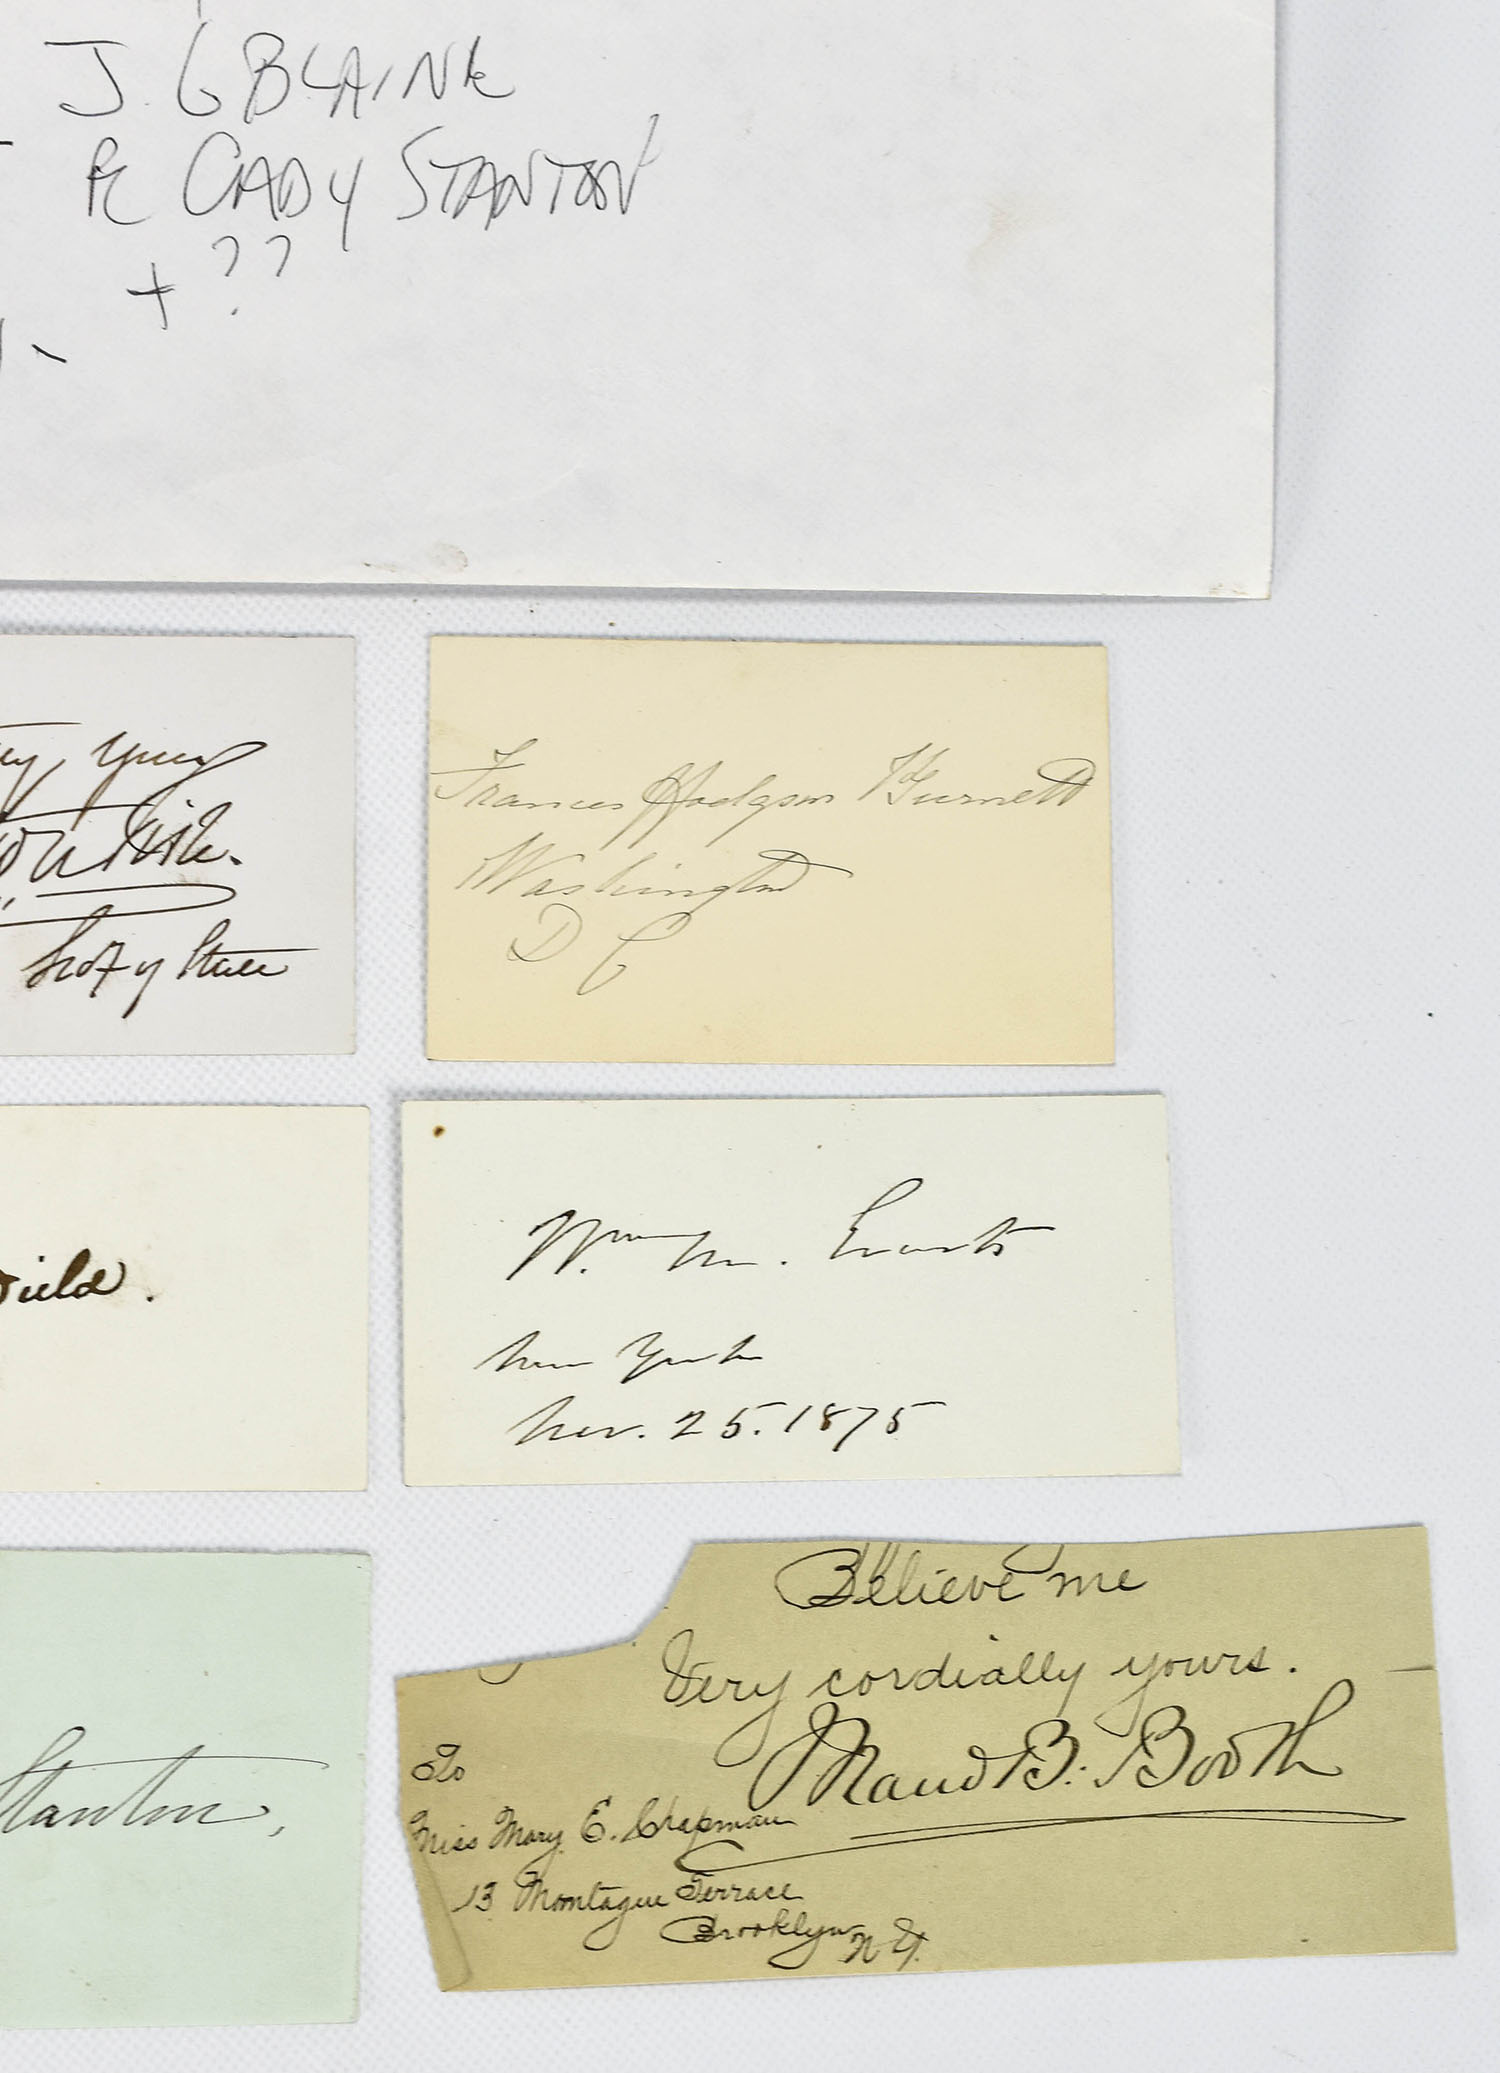 J. G BLAINE
E CADY STANTON
+ ??
Frances Hodgson Burnett
Washington
D C
Wm. M. Evarts
New York
Nov. 25. 1875
Stanton,
Believe me
Very cordially yours.
Maud B. Booth
To
Miss Mary E. Chapman
13 Montague Terrace
Brooklyn N Y.